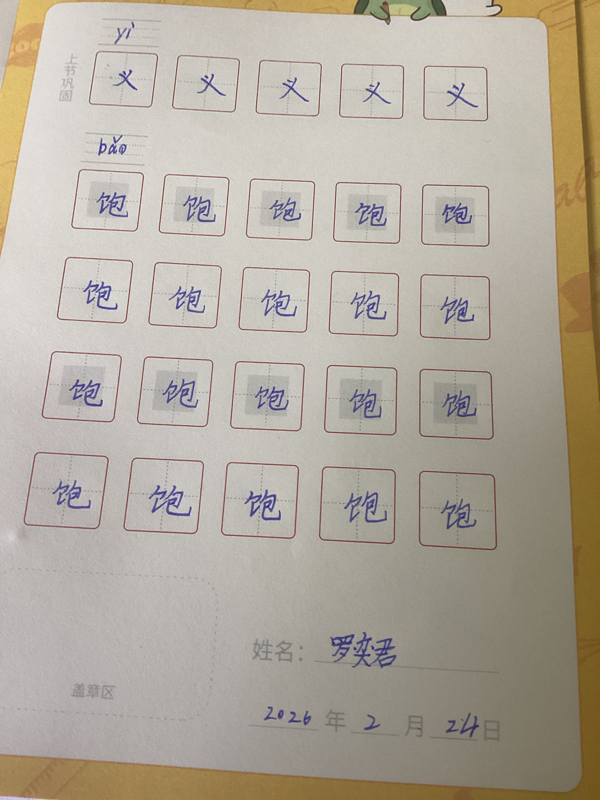 yì
上节巩固
义 义 义 义 义
bǎo
饱 饱 饱 饱 饱
饱 饱 饱 饱 饱
饱 饱 饱 饱 饱
饱 饱 饱 饱 饱
姓名: 罗奕君
盖章区
2026 年 2 月 24 日